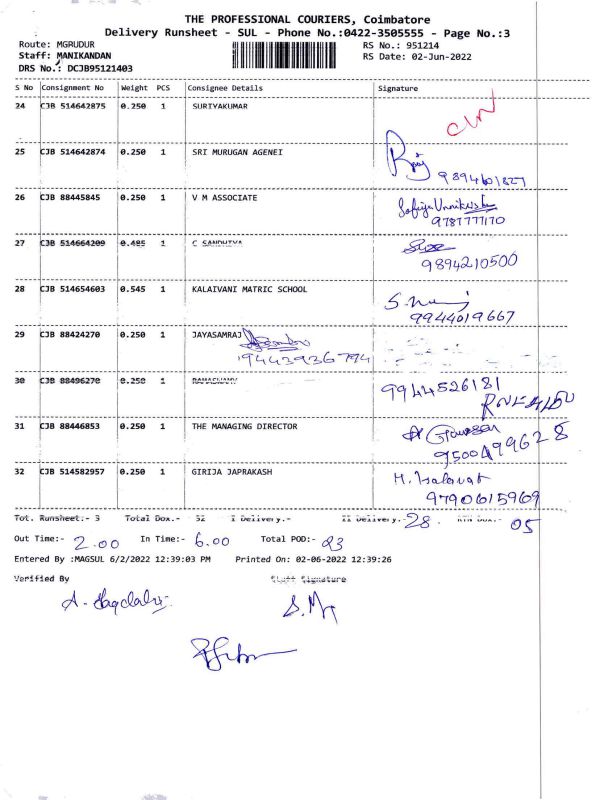 THE PROFESSIONAL COURIERS, Coimbatore
Delivery Runsheet - SUL - Phone No.:0422-3505555 - Page No.:3
Route: MGRUDUR
RS No.: 951214
Staff: MANIKANDAN
RS Date: 02-Jun-2022
DRS No.: DCJB95121403
S No Consignment No Weight PCS Consignee Details Signature
24 CJB 514642875 0.250 1 SURIYAKUMAR
25 CJB 514642874 0.250 1 SRI MURUGAN AGENEI
9894601827
26 CJB 88445845 0.250 1 V M ASSOCIATE
9787777170
27 CJB 514664209 0.485 1 C SANDHIYA
9894210500
28 CJB 514654603 0.545 1 KALAIVANI MATRIC SCHOOL
9944019667
29 CJB 88424270 0.250 1 JAYASAMRAJ
9443936794
30 CJB 88496270 0.250 1 RAMASWAMY 9944526181
31 CJB 88446853 0.250 1 THE MANAGING DIRECTOR
9500499628
32 CJB 514582957 0.250 1 GIRIJA JAPRAKASH
9790615969
Tot. Runsheet:- 3 Total Dox.- 32 I Delivery.- II Delivery.- 28. RTN Dox.- 05
Out Time:- 2.00 In Time:- 6.00 Total POD:- 23
Entered By :MAGSUL 6/2/2022 12:39:03 PM Printed On: 02-06-2022 12:39:26
Verified By Staff Signature